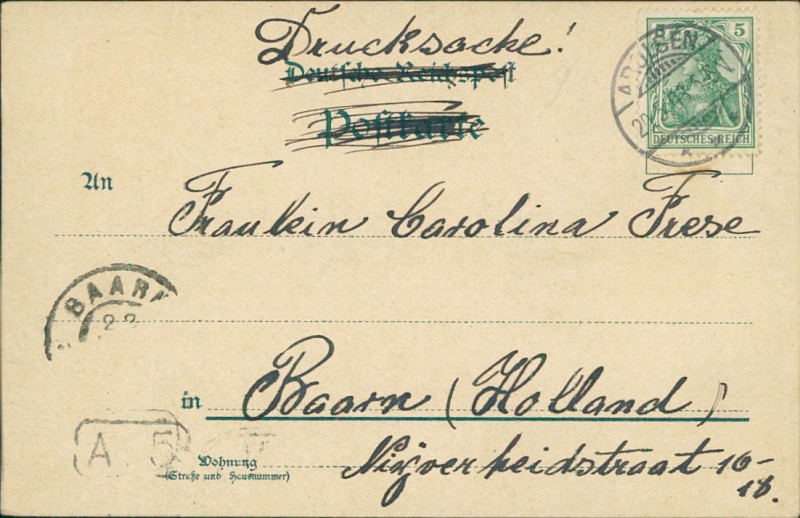 Drucksache!
Deutsche Reichspost
Postkarte
5
DEUTSCHES REICH
AROLSEN
An Fraulein Carolina Frese
BAARN
22
in Baarn (Holland)
A 5
Wohnung
(Straße und Hausnummer)
Nijverheidstraat 16-
18.